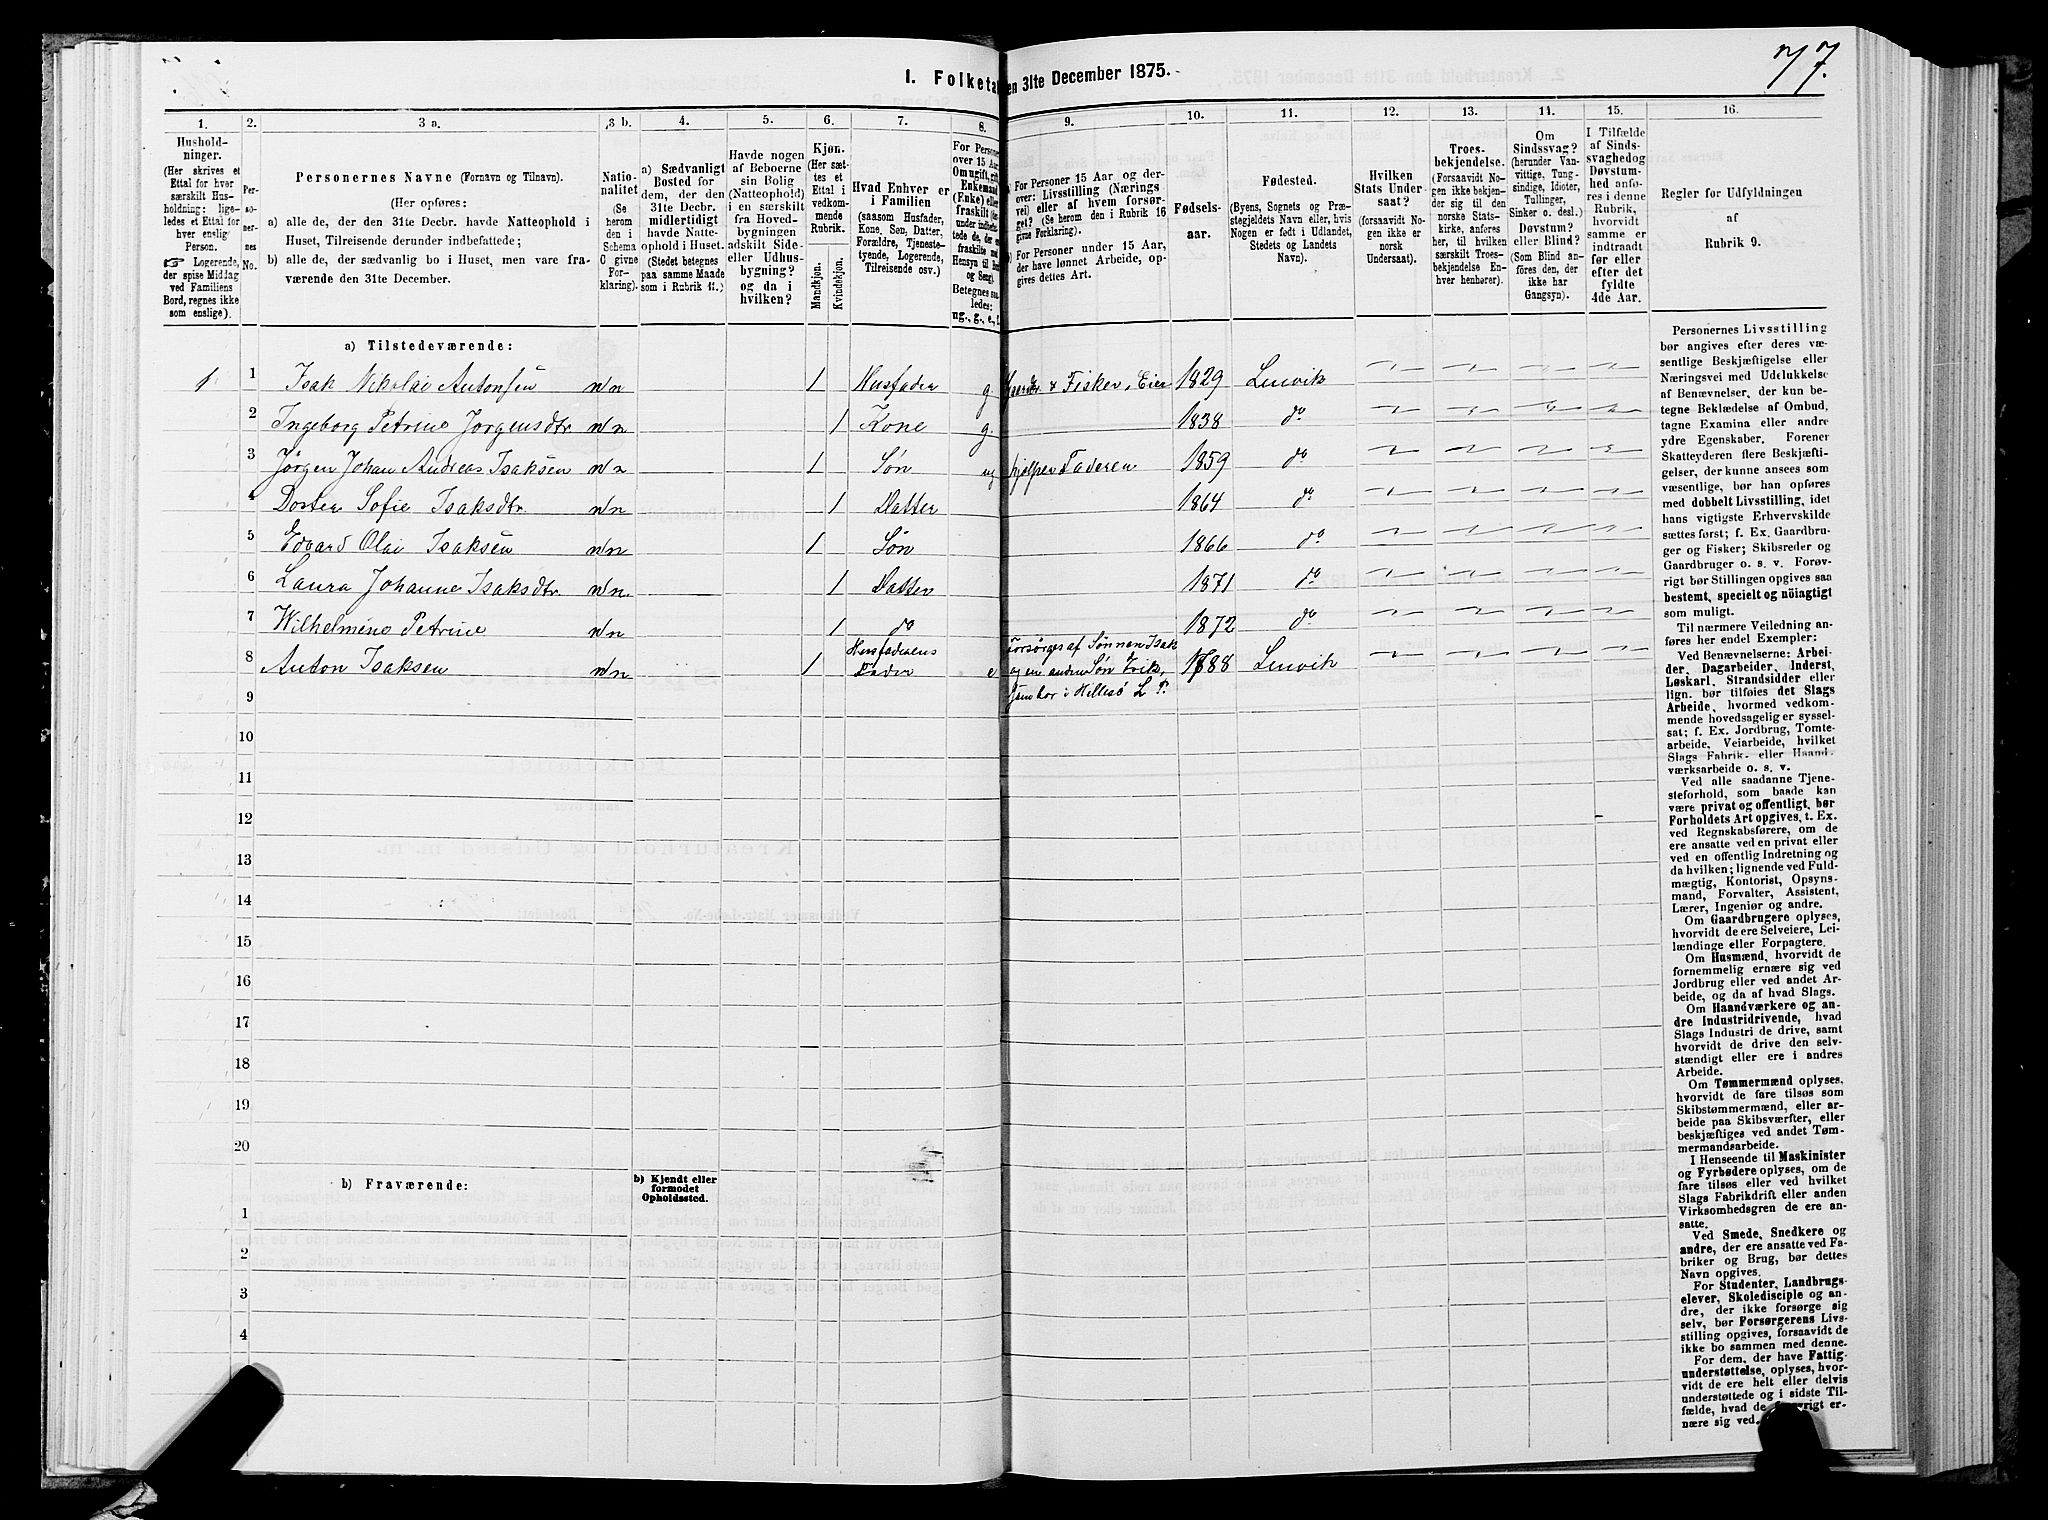 77.
1. Folketa
en 31te December 1875.
1. 2. 3 a. 3 b. 4. 5. 6. 7. 8. 9. 10. 11. 12. 13. 14. 15. 16.
Hushold-
ninger.
(Her skrives et
Ettal for hver
særskilt Hus-
holdning; lige-
ledes et Ettal for
hver enslig
Person.
☞ Logerende,
der spise Middag
ved Familiens
Bord, regnes ikke
som enslige).
Per-
so-
ner-
nes
No.
Personernes Navne (Fornavn og Tilnavn).
(Her opføres:
a) alle de, der den 31te Decbr. havde Natteophold i
Huset, Tilreisende derunder indbefattede;
b) alle de, der sædvanlig bo i Huset, men vare fra-
værende den 31te December.
Natio-
nalitet
(Se
herom
den i
Schema
C givne
For-
klaring).
a) Sædvanligt
Bosted for
dem, der den
31te Decbr.
midlertidigt
havde Natte-
ophold i Huset.
(Stedet betegnes
paa samme Maade
som i Rubrik 11.)
Havde nogen
af Beboerne
sin Bolig
(Natteophold)
i en særskilt
fra Hoved-
bygningen
adskilt Side-
eller Udhus-
bygning?
og da i
hvilken?
Kjøn.
(Her sæt-
tes et
Ettal i
vedkom-
mende
Rubrik.
Mandkjøn.
Kvindekjøn.
Hvad Enhver er
i Familien
(saasom Husfader,
Kone, Søn, Datter,
Forældre, Tjeneste-
tyende, Logerende,
Tilreisende osv.)
For Persone
over 15 Aar
Om ugift, gift
Enkemand
(Enke) eller
fraskilt
Betegnes saa-
ledes:
ug., g., e.,
For Personer 15 Aar og der-
over: Livsstilling (Nærings
vei) eller af hvem forsør-
get? (Se herom den i Rubrik 16
givne Forklaring).
For Personer under 15 Aar,
der have lønnet Arbeide, op-
gives dettes Art.
Fødsels-
aar.
Fødested.
(Byens, Sognets og Præ-
stegjeldets Navn eller, hvis
Nogen er født i Udlandet,
Stedets og Landets
Navn).
Hvilken
Stats Under-
saat?
(forsaavidt No-
gen ikke er
norsk
Undersaat).
Troes-
bekjendelse.
(Forsaavidt No-
gen ikke bekjen-
der sig til den
norske Stats-
kirke, anføres
her, til hvilken
særskilt Troes-
bekjendelse En-
hver henhører).
Om
Sindssvag?
(herunder Van-
vittige, Tung-
sindige, Idioter,
Tullinger,
Sinker o. desl.)
Døvstum?
eller Blind?
(Som Blind an-
føres den, der
ikke har
Gangsyn).
I Tilfælde
af Sinds-
svaghed og
Døvstum-
hed anfø-
res i denne
Rubrik,
hvorvidt
samme er
indtraadt
før eller
efter det
fyldte
4de Aar.
Regler for Udfyldningen
af
Rubrik 9.
a) Tilstedeværende:
1 1 Isak Nikolai Antonsen n/n 1 Husfader g Gaardbr & Fisker, Eier 1829 Lenvik
2 Ingeborg Petrine Jørgensdtr. n/n 1 Kone g. 1838 do
3 Jørgen Johan Andreas Isaksen n/n 1 Søn ug hjelper Faderen 1859 do
4 Dortea Sofie Isaksdtr. n/n 1 Datter 1864 do
5 Edvard Olai Isaksen n/n 1 Søn 1866 do
6 Laura Johanne Isaksdtr. n/n 1 Datter 1871 do
7 Wilhelmine Petrine n/n 1 do 1872 do
8 Anton Isaksen n/n 1 Husfaderens Fader e Forsørges af Sønnen Isak 1788 Lenvik
og en anden Søn Erik,
som bor i Hillesø L. P.
9
10
11
12
13
14
15
16
17
18
19
20
b) Fraværende:
b) Kjendt eller
formodet
Opholdssted.
1
2
3
4
Personernes Livsstilling
bør angives efter deres væ-
sentlige Beskjæftigelse eller
Næringsvei med Udelukkelse
af Benævnelser, der kun be-
tegne Beklædelse af Ombud,
tagne Examina eller andre
ydre Egenskaber. Forener
Skatteyderen flere Beskjæfti-
gelser, der kunne ansees som
væsentlige, bør han opføres
med dobbelt Livsstilling, idet
hans vigtigste Erhvervskilde
sættes først; f. Ex. Gaardbru-
ger og Fisker; Skibsreder og
Gaardbruger o. s. v. Forøv-
rigt bør Stillingen opgives saa
bestemt, specielt og nøiagtigt
som muligt.
Til nærmere Veiledning an-
føres her endel Exempler:
Ved Benævnelserne: Arbei-
der, Dagarbeider, Inderst,
Løskarl, Strandsidder eller
lign. bør tilføies det Slags
Arbeide, hvormed vedkom-
mende hovedsagelig er syssel-
sat; f. Ex. Jordbrug, Tomte-
arbeide, Veiarbeide, hvilket
Slags Fabrik- eller Haand-
værksarbeide o. s. v.
Ved alle saadanne Tjene-
steforhold, som baade kan
være privat og offentligt, bør
Forholdets Art opgives, t. Ex.
ved Regnskabsførere, om de
ere ansatte ved en privat eller
ved en offentlig Indretning og
da hvilken; lignende ved Fuld-
mægtig, Kontorist, Opsyns-
mand, Forvalter, Assistent,
Lærer, Ingeniør og andre.
Om Gaardbrugere oplyses,
hvorvidt de ere Selveiere, Lei-
lændinge eller Forpagtere.
Om Husmænd, hvorvidt de
fornemmelig ernære sig ved
Jordbrug eller ved andet Ar-
beide, og da af hvad Slags.
Om Haandværkere og an-
dre Industridrivende, hvad
Slags Industri de drive, samt
hvorvidt de drive den selv-
stændigt eller ere i andres
Arbeide.
Om Tømmermænd oplyses,
hvorvidt de fare tilsøs som
Skibstømmermænd, eller ar-
beide paa Skibsværfter, eller
beskjæftiges ved andet Tøm-
mermandsarbeide.
I Henseende til Maskinister
og Fyrbødere oplyses, om de
fare tilsøs eller ved hvilket
Slags Fabrikdrift eller anden
Virksomhedsgren de ere an-
satte.
Ved Smede, Snedkere og
andre, der ere ansatte ved Fa-
briker og Brug, bør dettes
Navn opgives.
For Studenter, Landbrugs-
elever, Skoledisciple og an-
dre, der ikke forsørge sig
selv, bør Forsørgerens Livs-
stilling opgives, forsaavidt de
ikke bo sammen med denne.
For dem, der have Fattig-
understøttelse, oplyses, hvor-
vidt de ere helt eller delvis
understøttede og i sidste Til-
fælde, hvad de forøvrigt er-
nære sig ved.